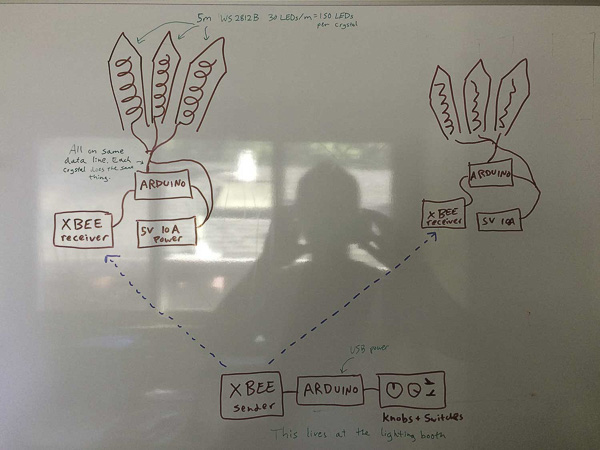 5m WS2812B 30 LEDs/m = 150 LEDs
per crystal
All on same
data line. Each
crystal does the same
thing.
ARDUINO
XBEE
receiver
5V 10A
Power
ARDUINO
XBEE
receiver
5V 10A
USB power
XBEE
Sender
ARDUINO
Knobs + Switches
This lives at the lighting booth